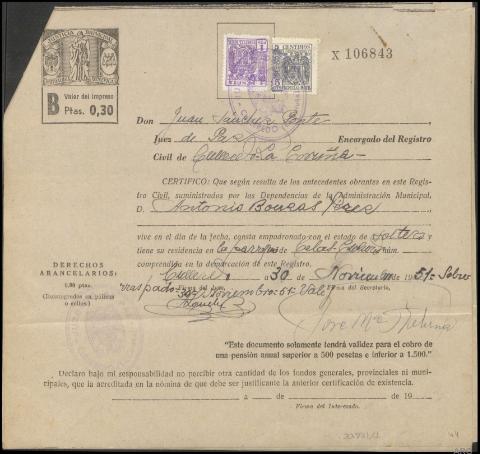 X 106843
JUSTICIA MUNICIPAL
B Valor del impreso
Ptas. 0,30
Don Juan Sánchez
Juez de Paz Encargado del Registro
Civil de Culleredo La Coruña
CERTIFICO: Que según resulta de los antecedentes obrantes en este Regis-
tro Civil, suministrados por las Dependencias de la Administración Municipal,
D. Antonio Bouzas
vive en el día de la fecha, consta empadronado con el estado de soltero y
tiene su residencia en la parroquia de núm.
comprendida en la demarcación de este Registro.
DERECHOS
ARANCELARIOS:
(Reintegrados en pólizas
o sellos)
Culleredo, 30 de Noviembre de 1951- Sobre
raspado: 30 Noviembre: 51- Vale
Firma del Juez, Firma del Secretario,
José Mª
"Este documento solamente tendrá validez para el cobro de
una pensión anual superior a 500 pesetas e inferior a 1.500."
Declaro bajo mi responsabilidad no percibir otra cantidad de los fondos generales, provinciales ni muni-
cipales, que la acreditada en la nómina de que debe ser justificante la anterior certificación de existencia.
a de de 19
Firma del Interesado.